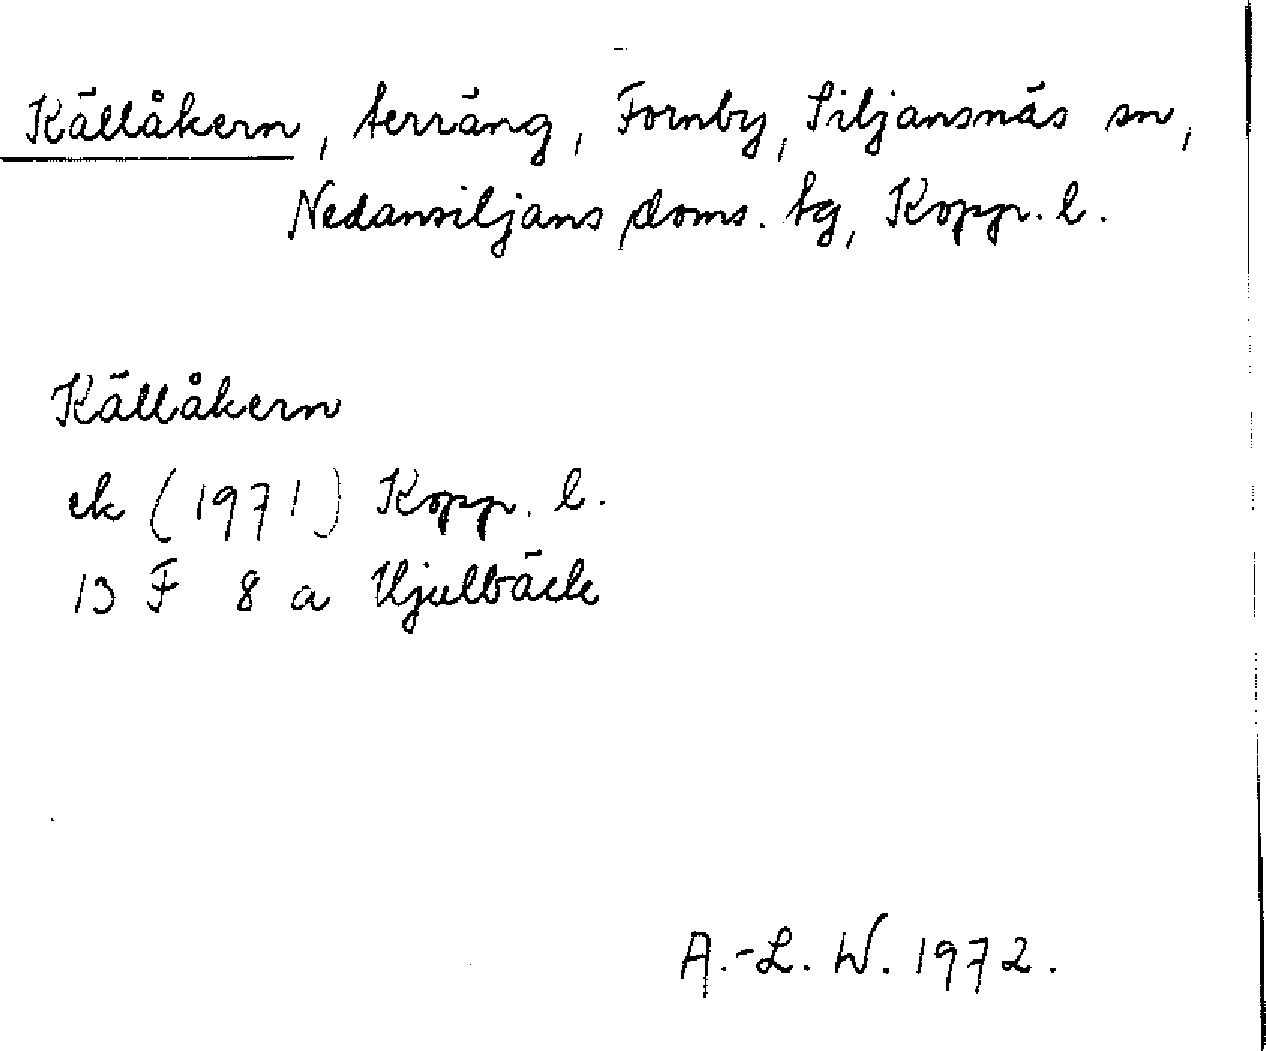 Källåkern, terräng, Fornby, Siljansnäs sn,
Nedansiljans doms. tg, Kopp. l.
Källåkern
ek (1971) Kopp. l.
13 F 8 a Hjulbäck
A.-L. W. 1972.